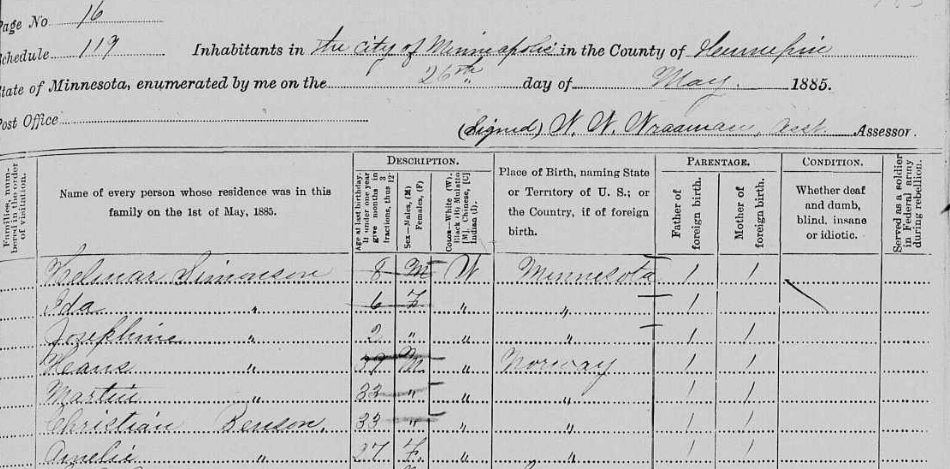 Page No 16
Schedule 119 Inhabitants in the City of Minneapolis in the County of Hennepin
State of Minnesota, enumerated by me on the 26th day of May 1885.
Post Office
(Signed) N. N. Asst. Assessor.
Families, numbered in the order of visitation.
Name of every person whose residence was in this family on the 1st of May, 1885.
DESCRIPTION.
Age at last birthday. If under one year give months in fractions, thus 3/12
Sex—Males, (M) Females, (F)
Color—White (W), Black (B), Mulatto (M), Chinese, (C) Indian (I).
Place of Birth, naming State or Territory of U. S.; or the Country, if of foreign birth.
PARENTAGE.
Father of foreign birth.
Mother of foreign birth.
CONDITION.
Whether deaf and dumb, blind, insane or idiotic.
Served as a soldier in Federal army during rebellion.
Helmar Simonson 8 M W Minnesota 1 1
Ida " 6 F " " 1 1
Josephine " 2 " " " 1 1
Heans " 37 M " Norway 1 1
Martin " 33 " " " 1 1
Christian Benson. 33 " " " 1 1
Amelie " 27 F " " 1 1